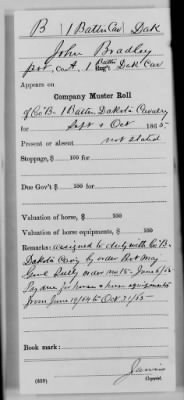 B | 1 Batt'n Cav | Dak
John Bradley
pvt., Co. A, 1 Batt'n Dak Cav
Appears on
Company Muster Roll
of Co "B" 1 Batt'n. Dakota Cavalry
for Sept & Oct 1865
Present or absent not stated
Stoppage, $ 100 for
Due Gov't $ 100 for
Valuation of horse, $ 100
Valuation of horse equipments, $ 100
Remarks: assigned to duty with Co "B"
Dakota Cav'y by order Bvt Maj
Genl Sully order No 15 June 6/65
Pay due for horse & horse equipments
from June 10/64 to Oct 31/65
Book mark:
(859)
Copyist.